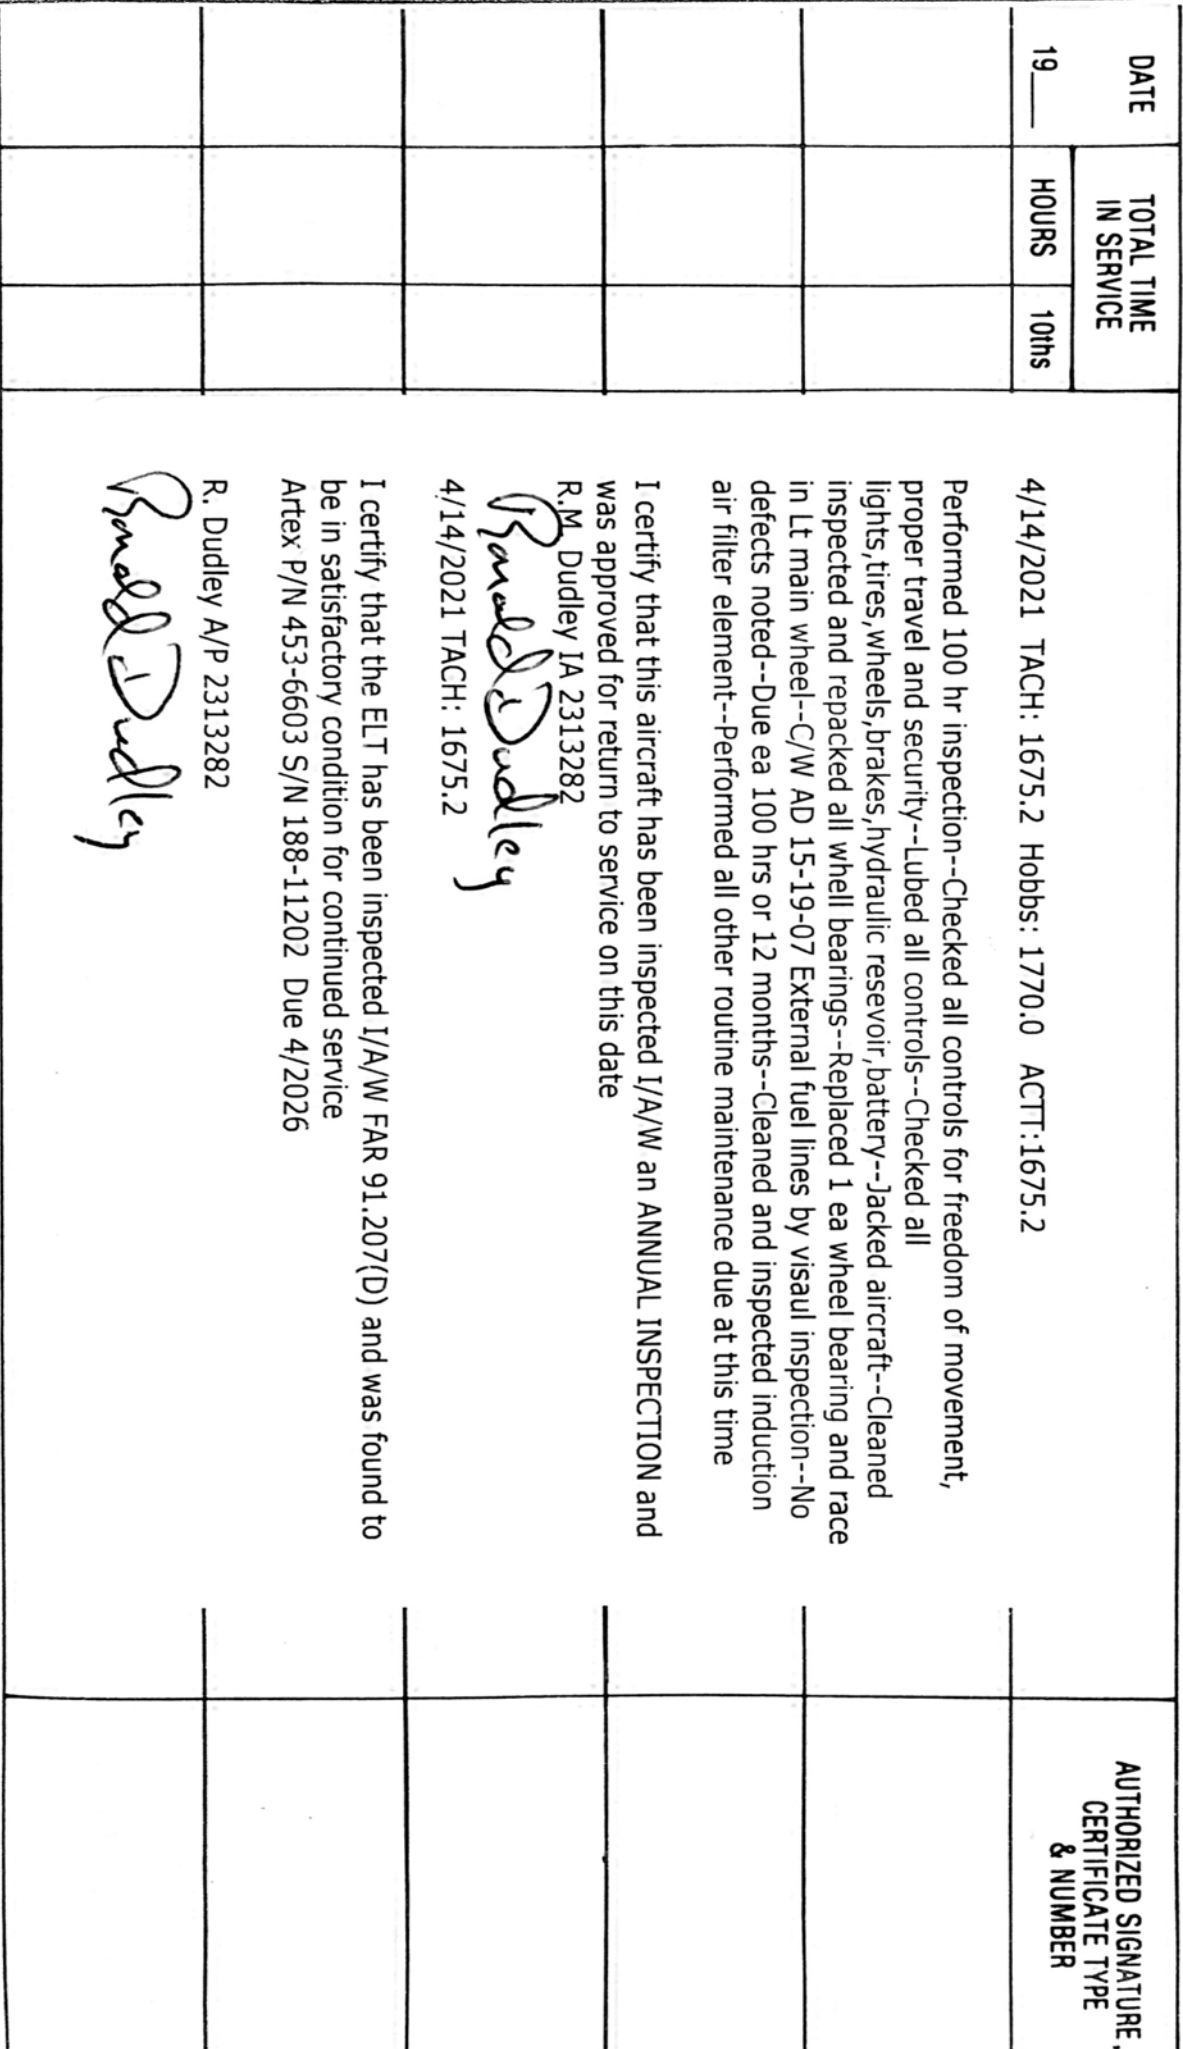 DATE
19___
TOTAL TIME
IN SERVICE
HOURS
10ths
AUTHORIZED SIGNATURE,
CERTIFICATE TYPE
& NUMBER
4/14/2021 TACH: 1675.2 Hobbs: 1770.0 ACTT:1675.2
Performed 100 hr inspection--Checked all controls for freedom of movement,
proper travel and security--Lubed all controls--Checked all
lights,tires,wheels,brakes,hydraulic resevoir,battery--Jacked aircraft--Cleaned
inspected and repacked all whell bearings--Replaced 1 ea wheel bearing and race
in Lt main wheel--C/W AD 15-19-07 External fuel lines by visaul inspection--No
defects noted--Due ea 100 hrs or 12 months--Cleaned and inspected induction
air filter element--Performed all other routine maintenance due at this time
I certify that this aircraft has been inspected I/A/W an ANNUAL INSPECTION and
was approved for return to service on this date
R.M. Dudley IA 2313282
Ronald Dudley
4/14/2021 TACH: 1675.2
I certify that the ELT has been inspected I/A/W FAR 91.207(D) and was found to
be in satisfactory condition for continued service
Artex P/N 453-6603 S/N 188-11202 Due 4/2026
R. Dudley A/P 2313282
Ronald Dudley